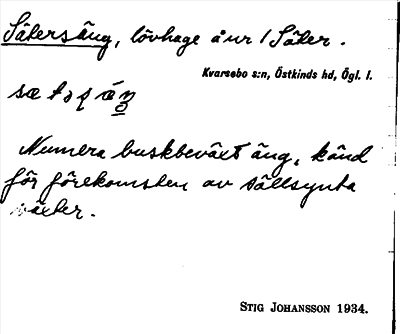 Sätersäng, lövhage å nr 1 Säter.
Kvarsebo s:n, Östkinds hd, Ögl. l.
Numera buskbeväxt äng, känd
för förekomsten av sällsynta
växter.
STIG JOHANSSON 1934.